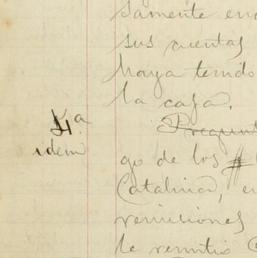 samente en
sus cuentas
haya tenido
la casa.
4ª
Pregunt
idem
go de los #
Catalina, e
remisiones
le remitió